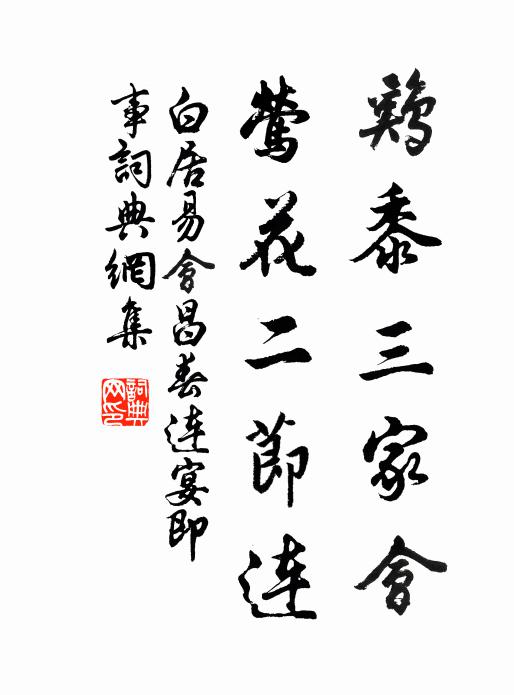 鷄黍三家會
鶯花二節連
白居易會昌春連宴即
事詞典網集
詞典
网印